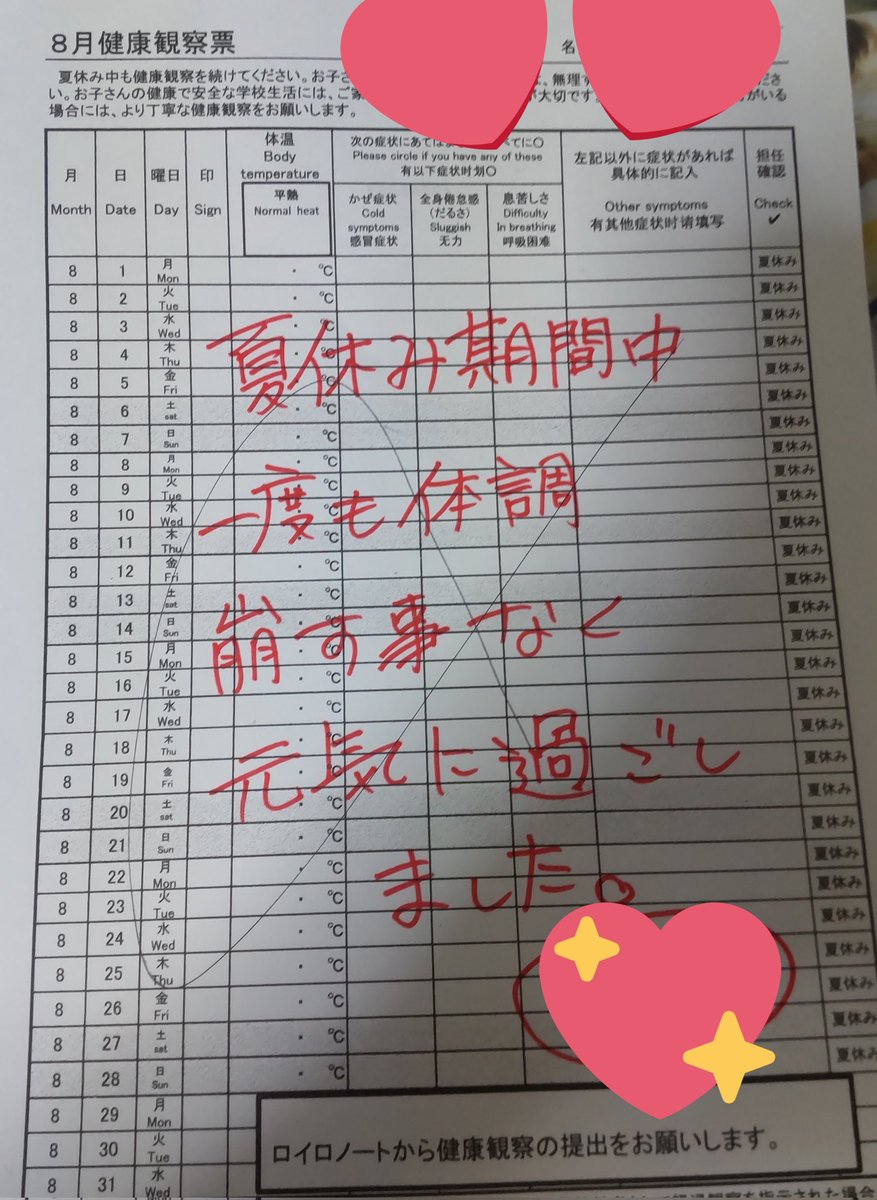 8月健康観察票
名
夏休み中も健康観察を続けてください。お子さ は、無理す ださ
い。お子さんの健康で安全な学校生活には、ご家 が大切です がいる
場合には、より丁寧な健康観察をお願いします。
月 Month
日 Date
曜日 Day
印 Sign
体温
Body
temperature
平熱
Normal heat
次の症状にあてはま べてに〇
Please circle if you have any of these
有以下症状时划〇
かぜ症状
Cold
symptoms
感冒症状
全身倦怠感
(だるさ)
Sluggish
无力
息苦しさ
Difficulty
In breathing
呼吸困难
左記以外に症状があれば
具体的に記入
Other symptoms
有其他症状时请填写
担任
確認
Check
✔
8 1 月 Mon ・ ℃ 夏休み
8 2 火 Tue ・ ℃ 夏休み
8 3 水 Wed ・ ℃ 夏休み
8 4 木 Thu ・ ℃ 夏休み
8 5 金 Fri ・ ℃ 夏休み
8 6 土 sat ・ ℃ 夏休み
8 7 日 Sun ・ ℃ 夏休み
8 8 月 Mon ・ ℃ 夏休み
8 9 火 Tue ・ ℃ 夏休み
8 10 水 Wed ・ ℃ 夏休み
8 11 木 Thu ・ ℃ 夏休み
8 12 金 Fri ・ ℃ 夏休み
8 13 土 sat ・ ℃ 夏休み
8 14 日 Sun ・ ℃ 夏休み
8 15 月 Mon ・ ℃ 夏休み
8 16 火 Tue ・ ℃ 夏休み
8 17 水 Wed ・ ℃ 夏休み
8 18 木 Thu ・ ℃ 夏休み
8 19 金 Fri ・ ℃ 夏休み
8 20 土 sat ・ ℃ 夏休み
8 21 日 Sun ・ ℃ 夏休み
8 22 月 Mon ・ ℃ 夏休み
8 23 火 Tue ・ ℃ 夏休み
8 24 水 Wed ・ ℃ 夏休み
8 25 木 Thu ・ ℃ 夏休み
8 26 金 Fri ・ ℃ 夏休み
8 27 土 sat ・ ℃ 夏休み
8 28 日 Sun ・ ℃
8 29 月 Mon
8 30 火 Tue
8 31 水 Wed
夏休み期間中
一度も体調
崩す事なく
元気に過ごし
ました。
ロイロノートから健康観察の提出をお願いします。